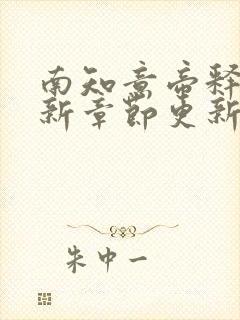 南知意帝释
新章節更新
朱中一